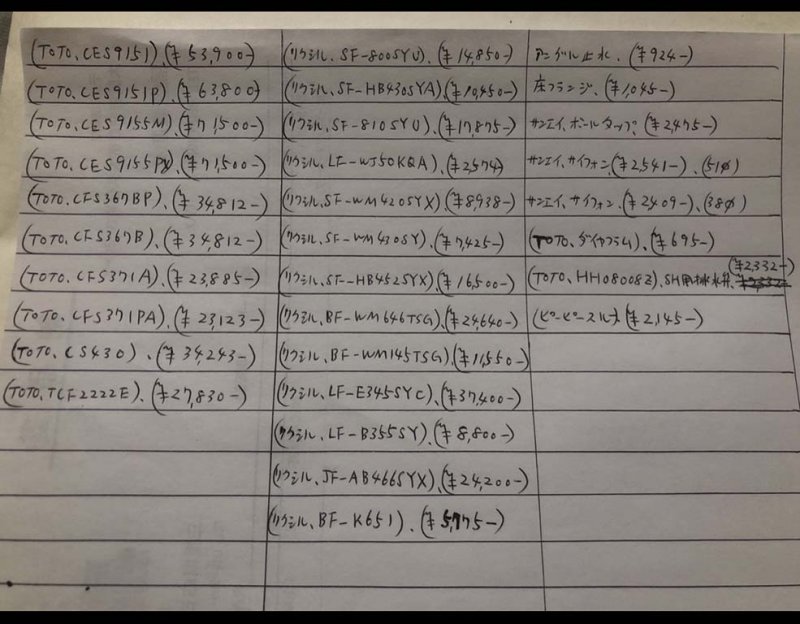 (TOTO、CES9151)、(¥53,900-)
(TOTO、CES9151P)、(¥63,800)
(TOTO、CES9155M)、(¥71,500-)
(TOTO、CES9155PX)、(¥71,500-)
(TOTO、CFS367BP)、(¥34,812-)
(TOTO、CFS367B)、(¥34,812-)
(TOTO、CFS371A)、(¥23,885-)
(TOTO、CFS371PA)、(¥23,123-)
(TOTO、CS430)、(¥34,243-)
(TOTO、TCF2222E)、(¥27,830-)
(リクシル、SF-800SYU)、(¥14,850-)
(リクシル、SF-HB430SYA)、(¥10,450-)
(リクシル、SF-810SYU)、(¥17,875-)
(リクシル、LF-WJ50KQA)、(¥2,574)
(リクシル、SF-WM420SYX)、(¥8,938-)
(リクシル、SF-WM430SY)、(¥7,425-)
(リクシル、SF-HB452SYX)、(¥16,500-)
(リクシル、BF-WM646TSG)、(¥24,640-)
(リクシル、BF-WM145TSG)、(¥11,550-)
(リクシル、LF-E345SYC)、(¥37,400-)
(リクシル、LF-B355SY)、(¥8,800-)
(リクシル、JF-AB466SYX)、(¥24,200-)
(リクシル、BF-K651)、(¥5,775-)
アングル止水、(¥924-)
床フランジ、(¥1,045-)
サンエイ、ボールタップ、(¥2,475-)
サンエイ、サイフォン、(¥2,541-)、(51φ)
サンエイ、サイフォン、(¥2,409-)、(38φ)
(TOTO、ダイヤフラム)、(¥695-)
(TOTO、HH08008Z)、SH用排水弁、(¥2,332-)
(ピーピースルー)、(¥2,145-)